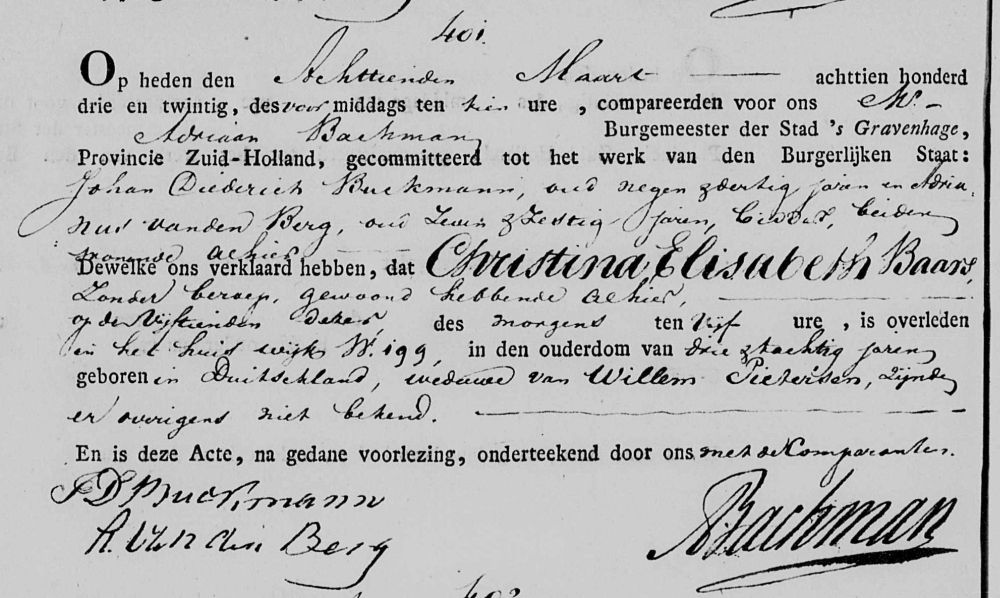 401.
Op heden den Achttienden Maart achttien honderd
drie en twintig, des voor middags ten tien ure, compareerden voor ons Mr.
Adriaan Backman Burgemeester der Stad 's Gravenhage,
Provincie Zuid-Holland, gecommitteerd tot het werk van den Burgerlijken Staat:
Johan Diederich Buckmann, oud negen & dertig jaren en Adria-
nus van den Berg, oud zeven & zestig jaren, beiden
wonende alhier
Dewelke ons verklaard hebben, dat Christina Elisabeth Baars,
zonder beroep, gewoond hebbende alhier,
op den Vijftienden dezer, des morgens ten vijf ure, is overleden
in het huis wijk W. 199, in den ouderdom van drie & tachtig jaren
geboren in Duitschland, weduwe van Willem Pietersen, zijnde
er overigens niet bekend.
En is deze Acte, na gedane voorlezing, onderteekend door ons met de Comparanten.
J D Buckmann
A. van den Berg
ABackman
402